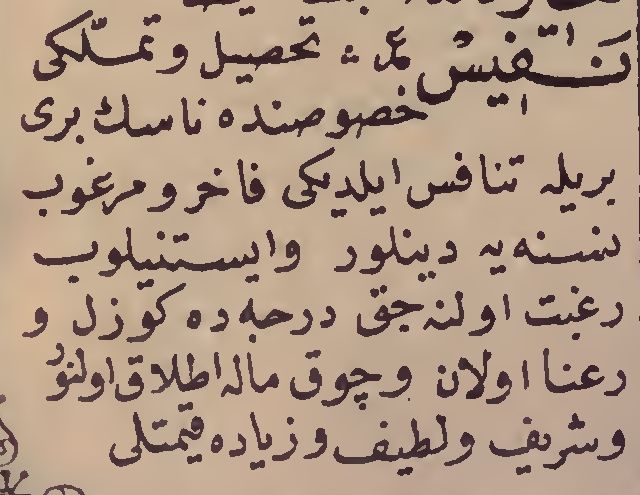 نفیس عم تحصیل و تملّکی
خصوصنده ناسك بری
بریله تنافس ایلدیکی فاخر و مرغوب
نسنه‌یه دینلور وایستنیلوب
رغبت اولنه‌جق درجه‌ده کوزل و
رعنا اولان وچوق ماله اطلاق اولنور
وشریف ولطیف وزیاده قیمتلی